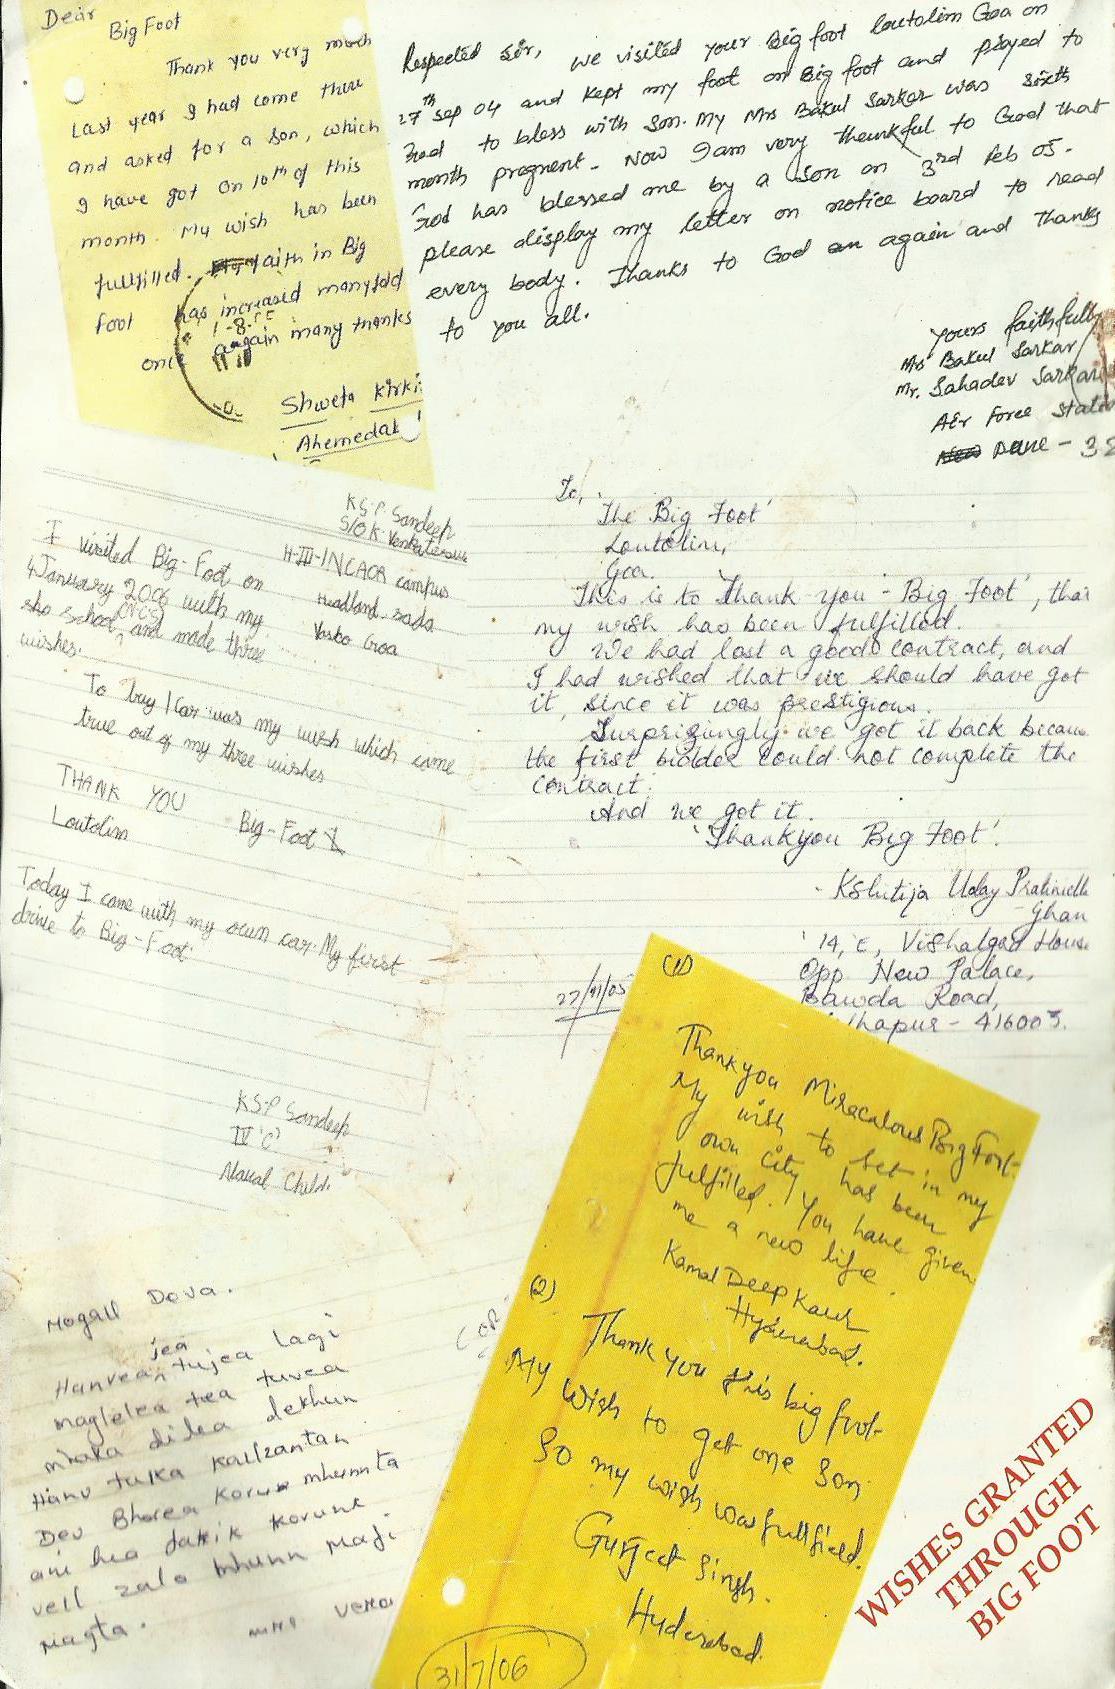 Dear
Big Foot
Thank you very much
Last year I had come there
and asked for a son, which
I have got on 10th of this
month. My wish has been
fullfilled. faith in Big
Foot has increased manyfold
once again many thanks
Shweta Kirki
Ahemedab
Respected Sir, we visited your Big foot loutolim Goa on
27th Sep 04 and kept my foot on Big foot and played to
God to bless with son. My Mrs Bakul Sarkar was sixth
month pregnent. Now I am very thenkful to God that
God has blessed me by a son on 3rd feb 05.
please display my letter on notice board to read
every body. Thanks to God again and Thanks
to you all.
Yours faithfull
Mrs Bakul Sarkar
Mr. Sahadev Sarkar
Air Force Statio
- 32
KSP Sandeep
S/O K Venkateswa
H-III-INCAOR campus
Headland sada
Vasko Goa
I visited Big-Foot on
4 January 2006 with my
school, and made three
wishes.
To buy 1 Car was my wish which came
true out of my three wishes
THANK YOU Big-Foot
Loutolim
Today I came with my own car. My first
drive to Big-Foot
KSP Sandeep
IV 'C'
Naval Child.
To,
'The Big Foot'
Loutolim,
Goa.
This is to Thank you - 'Big Foot', that
my wish has been fulfilled.
We had lost a good contract, and
I had wished that we should have got
it, since it was prestigious.
Surprizingly we got it back becau
the first bidder could not complete the
contract.
And we got it.
'Thankyou Big Foot'.
- Kshitija Uday Pratinidhi
Ghan
'14, E, Vishalgad House
Opp New Palace,
Bawda Road,
lhapur - 416003.
(1)
Thankyou Miraculous Big Foot.
My wish to set in my
own city has been
fulfilled. You have given
me a new life
Kamal Deep Kaur
Hyderabad.
(2)
Thank you this big foot
My wish to get one son
So my wish was fullfield.
Gurjeet Singh.
Hyderabad.
31/7/06
Mogall Deva.
Hanvean jea tujea lagi
maglelea tea tuvea
maka dilea dekhun
Hanv tuka kallzantan
Dev Bhorea korun mhunnta
ani hea fattik korunk
vell zalo mhunn maji
magta.
WISHES GRANTED
THROUGH
BIG FOOT